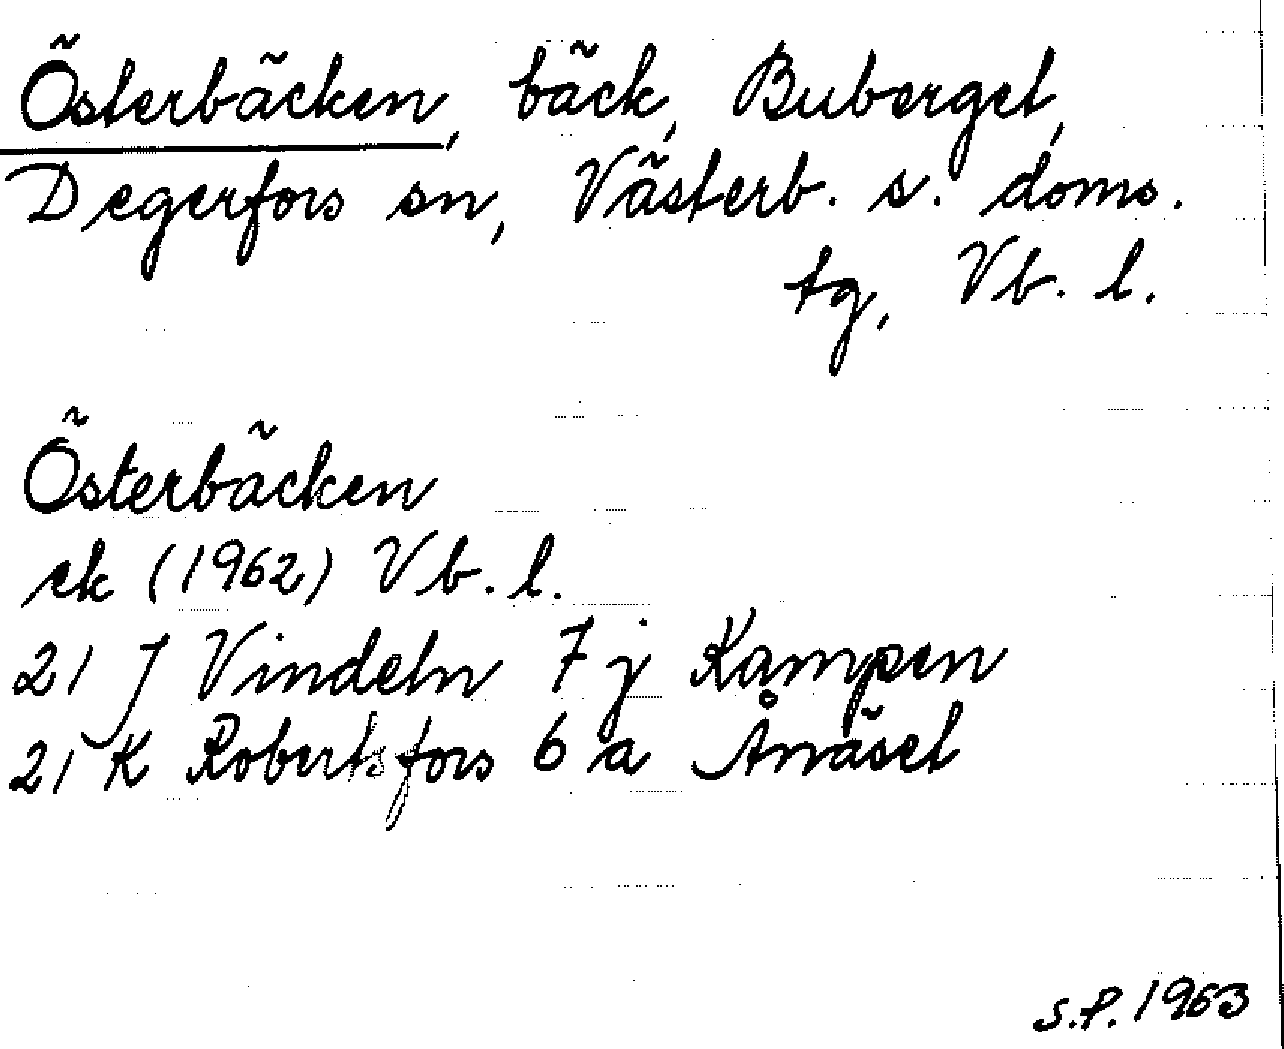 Österbäcken, bäck, Buberget,
Degerfors sn, Västerb. s. doms.
tg, Vb. l.
Österbäcken
ek (1962) Vb. l.
21 J Vindeln 7 j Kampen
21 K Robertsfors 6 a Ånäset
S.P. 1963